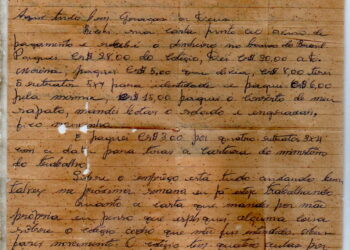 Aqui tudo bem graças a Deus.
Recebi sua carta junto ao aviso de
pagamento e recebi o dinheiro no banco do Brasil
Paguei Cr$ 28,00 do colégio, Cr$ 20,00 a tia
paguei Cr$ 5,00 que devia, Cr$ 8,00 tirei
5 retratos 5x7 para identidade e paguei Cr$ 6,00
pela mesma, Cr$ 15,00 paguei o conserto do meu
sapato, mandei botar o solado e engraxar,
ficou novinho
E paguei Cr$ 3,00 por quatro retratos 3x4
com a data para tirar a carteira do ministério
do trabalho.
Sobre o emprego está tudo andando bem,
talvez na próxima semana eu já esteja trabalhando
Quanto a carta que mandei por mão
própria eu penso que expliquei alguma coisa
sobre o colégio acho que não fui entendido
O colégio tem quatro aulas por